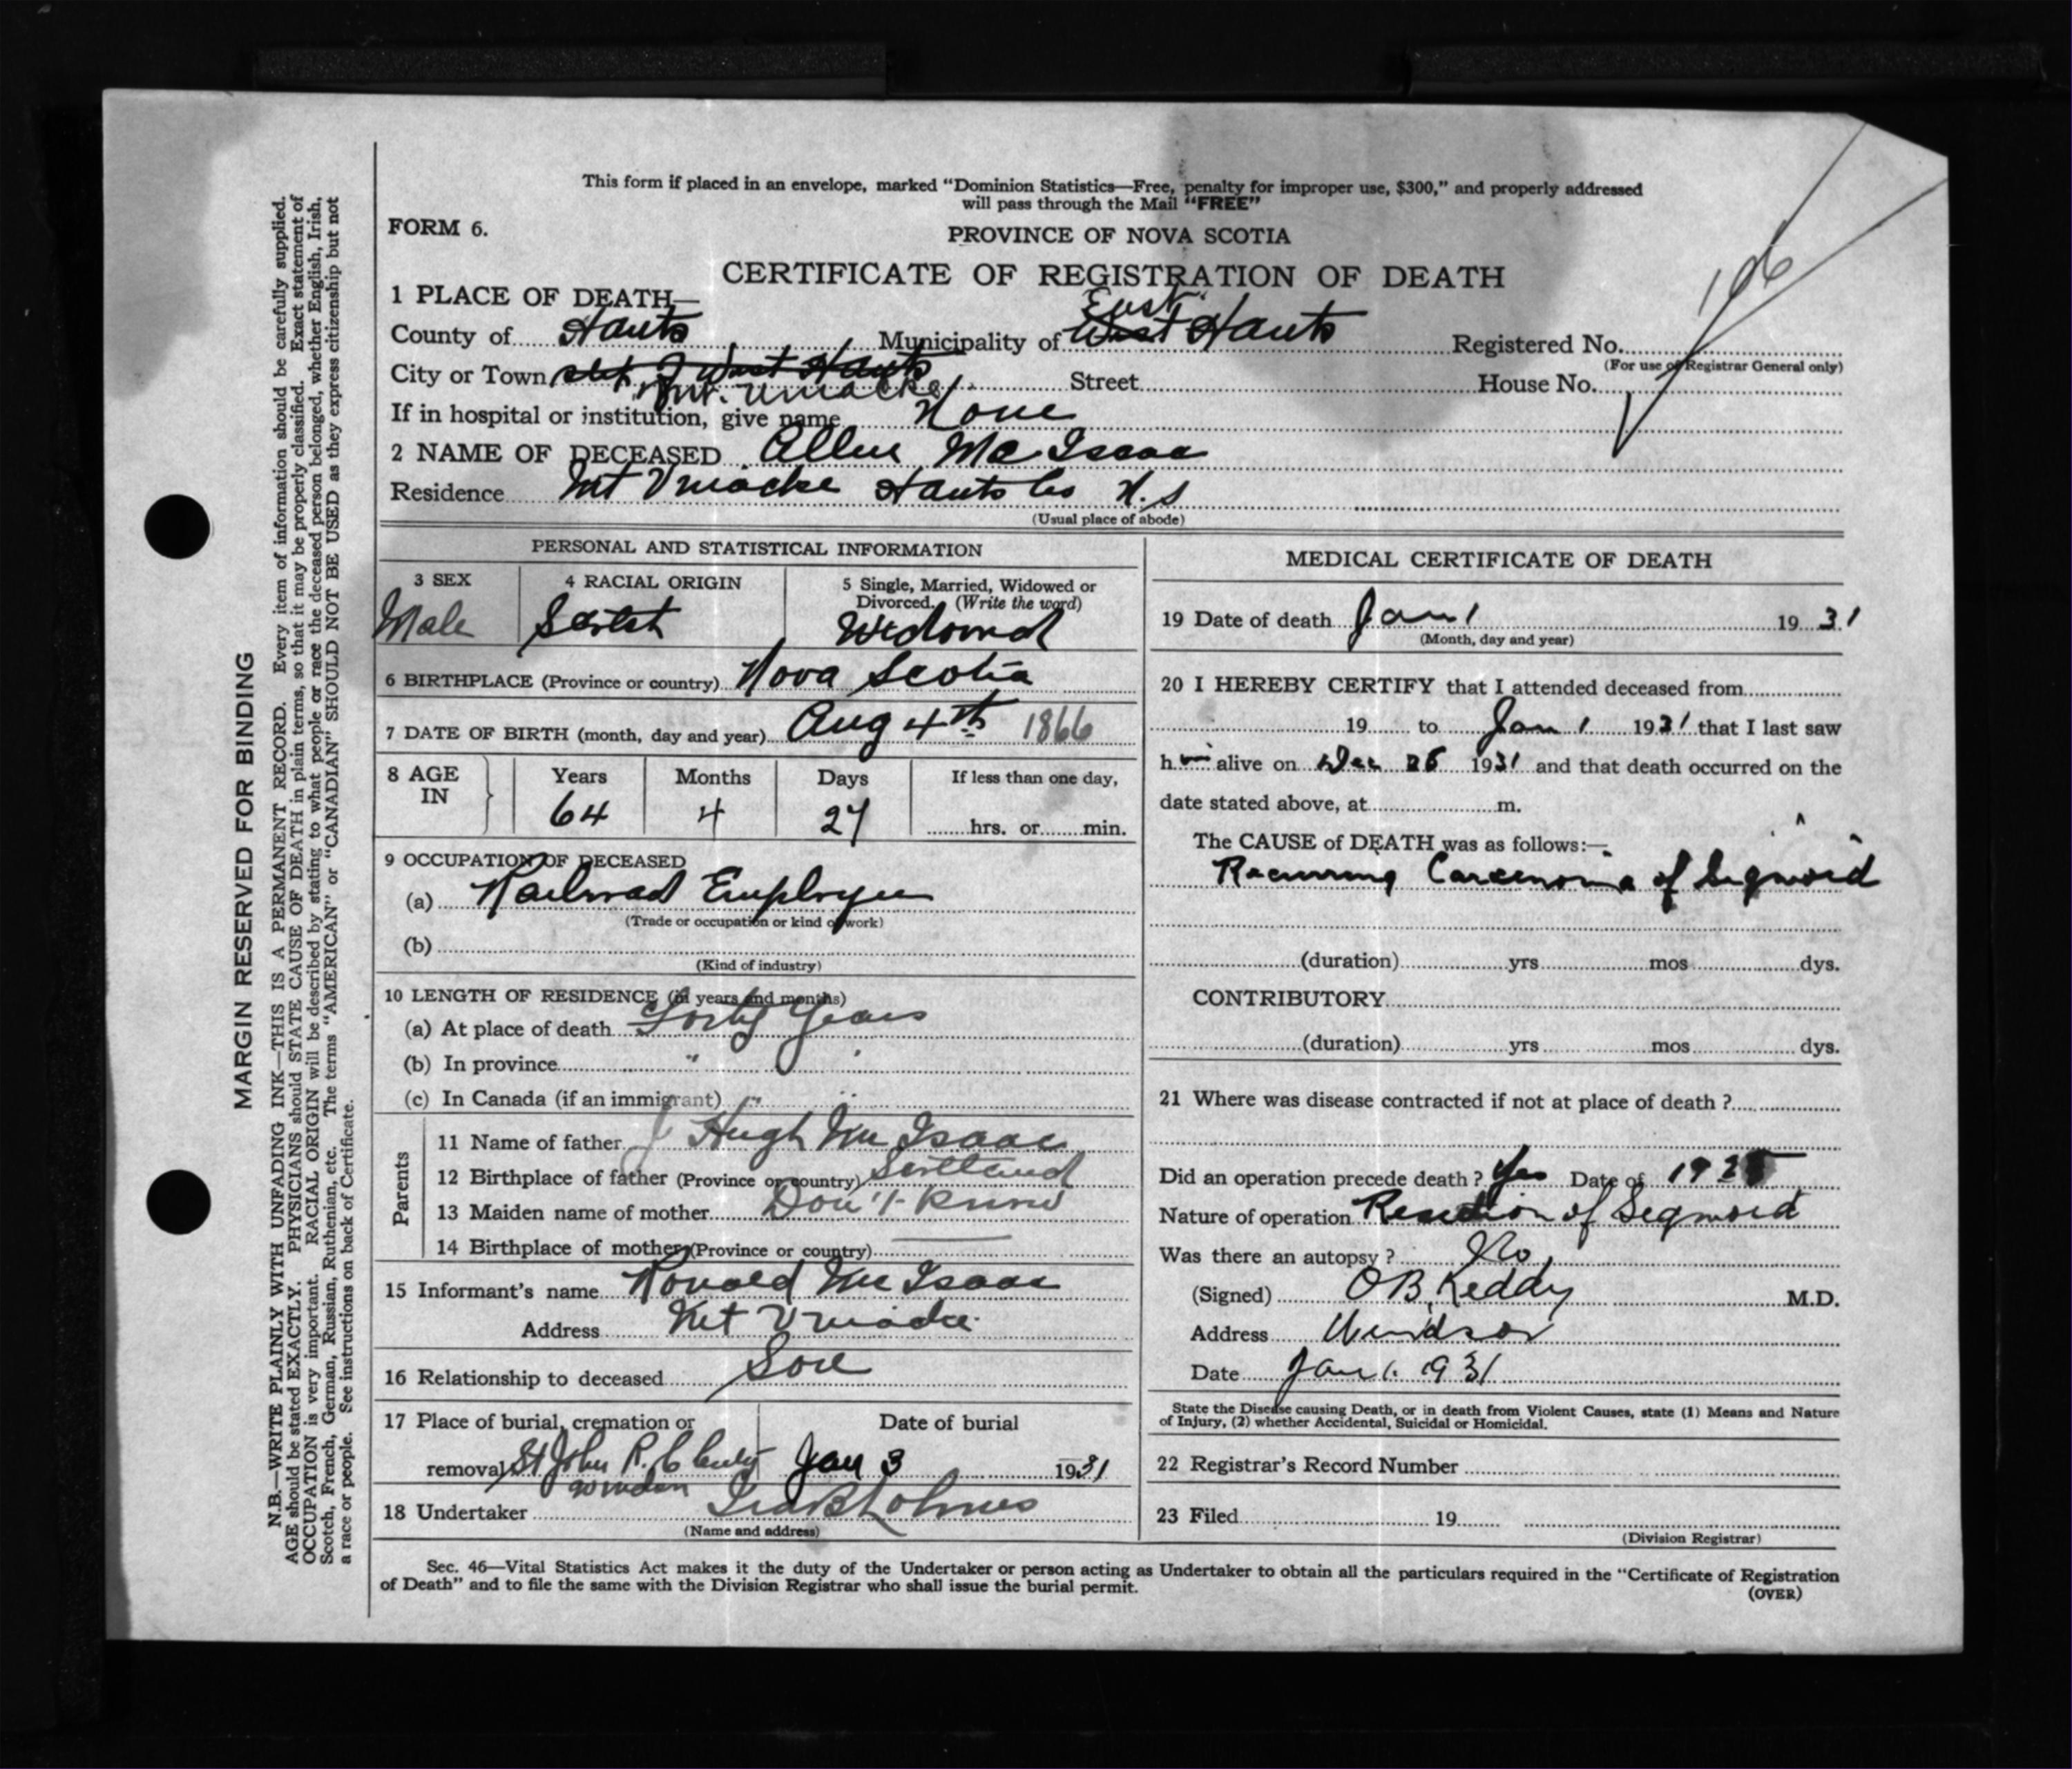 This form if placed in an envelope, marked "Dominion Statistics—Free, penalty for improper use, $300," and properly addressed
will pass through the Mail "FREE"
FORM 6.
PROVINCE OF NOVA SCOTIA
CERTIFICATE OF REGISTRATION OF DEATH
196
1 PLACE OF DEATH—
East
County of Hants Municipality of West Hants Registered No.
(For use of Registrar General only)
City or Town West Hants Street House No.
Mt. Uniacke
If in hospital or institution, give name None
2 NAME OF DECEASED Allen Mc Isaac
Residence Mt Uniacke Hants Co N.S
(Usual place of abode)
PERSONAL AND STATISTICAL INFORMATION
3 SEX 4 RACIAL ORIGIN 5 Single, Married, Widowed or
Divorced. (Write the word)
Male Scotch Widowed
6 BIRTHPLACE (Province or country) Nova Scotia
7 DATE OF BIRTH (month, day and year) Aug 4th 1866
8 AGE IN Years Months Days If less than one day,
64 4 27 hrs. or min.
9 OCCUPATION OF DECEASED
(a) Railroad Employee
(Trade or occupation or kind of work)
(b)
(Kind of industry)
10 LENGTH OF RESIDENCE (in years and months)
(a) At place of death Forty Years
(b) In province " "
(c) In Canada (if an immigrant) "
Parents
11 Name of father Hugh Mc Isaac
12 Birthplace of father (Province or country) Scotland
13 Maiden name of mother Don't Know
14 Birthplace of mother (Province or country) —
15 Informant's name Ronald Mc Isaac
Address Mt Uniacke
16 Relationship to deceased Son
17 Place of burial, cremation or Date of burial
removal St John R.C. Windsor Jan 3 1931
18 Undertaker Ira B Lohnes
(Name and address)
MEDICAL CERTIFICATE OF DEATH
19 Date of death Jan 1 1931
(Month, day and year)
20 I HEREBY CERTIFY that I attended deceased from
19 to Jan 1 1931 that I last saw
him alive on Dec 26 1931 and that death occurred on the
date stated above, at m.
The CAUSE of DEATH was as follows:—
Recurring Carcinoma of Sigmoid
(duration) yrs mos dys.
CONTRIBUTORY
(duration) yrs mos dys.
21 Where was disease contracted if not at place of death ?
Did an operation precede death ? Yes Date of 192
Nature of operation Resection of Segmoid
Was there an autopsy ? No
(Signed) O B Keddy M.D.
Address Windsor
Date Jan 1. 1931
State the Disease causing Death, or in death from Violent Causes, state (1) Means and Nature
of Injury, (2) whether Accidental, Suicidal or Homicidal.
22 Registrar's Record Number
23 Filed 19
(Division Registrar)
Sec. 46—Vital Statistics Act makes it the duty of the Undertaker or person acting as Undertaker to obtain all the particulars required in the "Certificate of Registration
of Death" and to file the same with the Division Registrar who shall issue the burial permit.
(OVER)
MARGIN RESERVED FOR BINDING
N.B.—WRITE PLAINLY WITH UNFADING INK—THIS IS A PERMANENT RECORD. Every item of information should be carefully supplied.
AGE should be stated EXACTLY. PHYSICIANS should STATE CAUSE OF DEATH in plain terms, so that it may be properly classified. Exact statement of
OCCUPATION is very important. RACIAL ORIGIN will be described by stating to what people or race the deceased person belonged, whether English, Irish,
Scotch, French, German, Russian, Ruthenian, etc. The terms "AMERICAN" or "CANADIAN" SHOULD NOT BE USED as they express citizenship but not
a race or people. See instructions on back of Certificate.